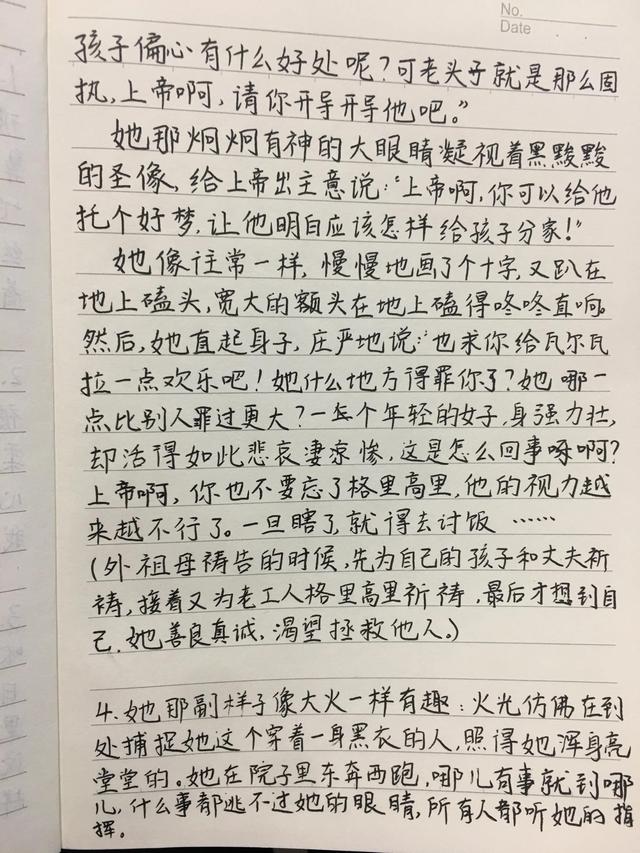 No.
Date
孩子偏心有什么好处呢？可老头子就是那么固
执，上帝啊，请你开导开导他吧。”
她那炯炯有神的大眼睛凝视着黑黢黢
的圣像，给上帝出主意说：“上帝啊，你可以给他
托个好梦，让他明白应该怎样给孩子分家！”
她像往常一样，慢慢地画了个十字，又趴在
地上磕头，宽大的额头在地上磕得咚咚直响。
然后，她直起身子，庄严地说：“也求你给瓦尔瓦
拉一点欢乐吧！她什么地方得罪你了？她哪一
点比别人罪过更大？一个年轻的女子，身强力壮，
却活得如此悲哀凄凉惨，这是怎么回事啊？
上帝啊，你也不要忘了格里高里，他的视力越
来越不行了。一旦瞎了，就得去讨饭……
（外祖母祷告的时候，先为自己的孩子和丈夫祈
祷，接着又为老工人格里高里祈祷，最后才想到自
己，她善良真诚，渴望拯救他人。）
4.她那副样子像大火一样有趣：火光仿佛在到
处捕捉她这个穿着一身黑衣的人，照得她浑身亮
堂堂的。她在院子里东奔西跑，哪儿有事就到哪
儿，什么事都逃不过她的眼睛，所有人都听她的指
挥。